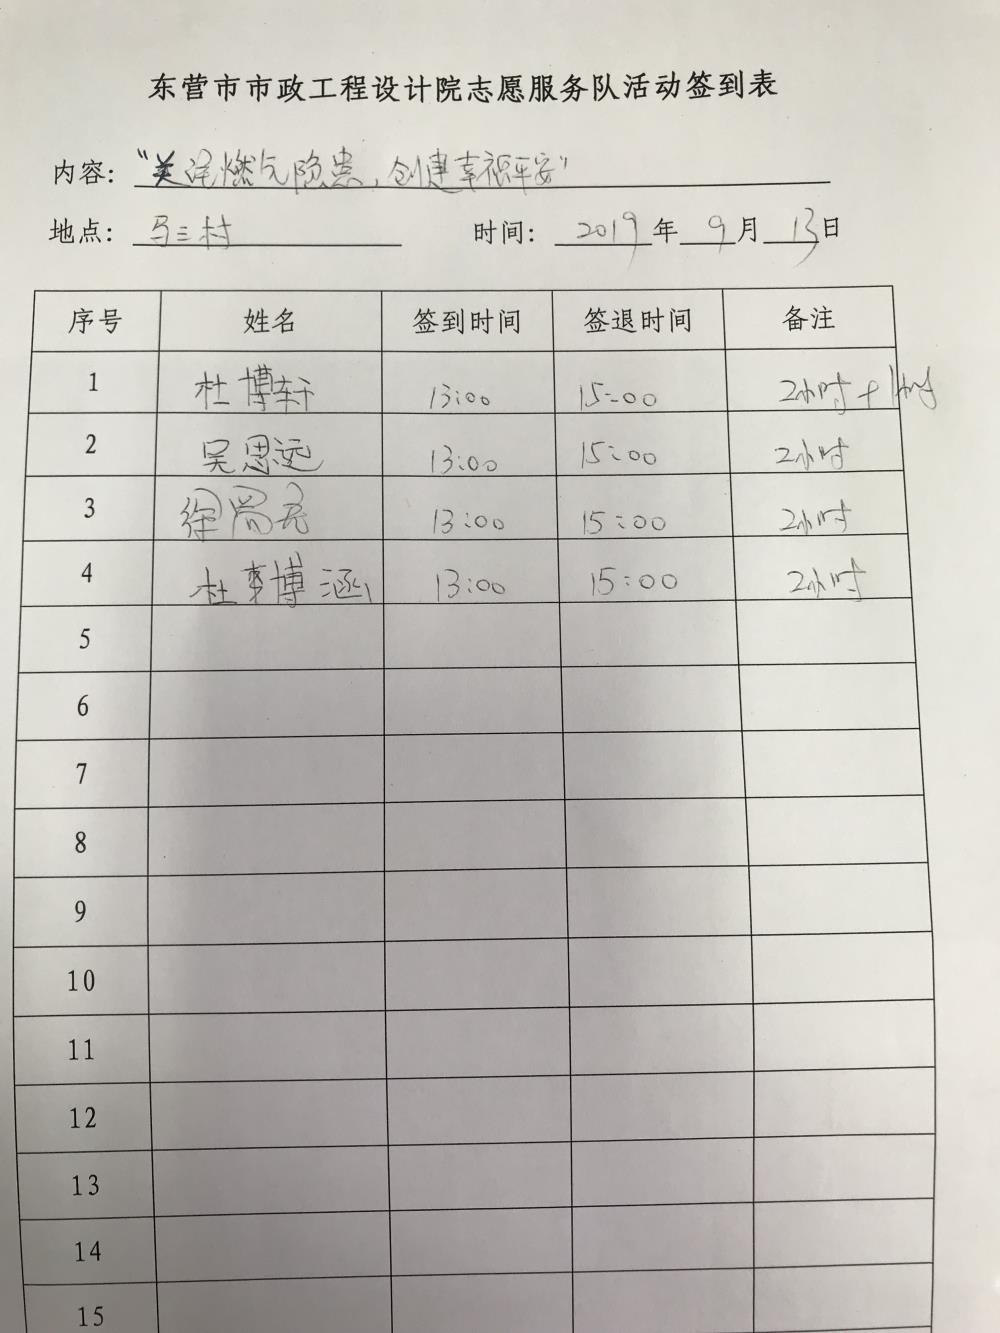 东营市市政工程设计院志愿服务队活动签到表
内容：“关注燃气隐患，创建幸福平安”
地点：马三村 时间：2019年9月13日
序号 姓名 签到时间 签退时间 备注
1 杜博轩 13:00 15:00 2小时+1小时
2 吴思远 13:00 15:00 2小时
3 徐尚亮 13:00 15:00 2小时
4 杜博涵 13:00 15:00 2小时
5
6
7
8
9
10
11
12
13
14
15